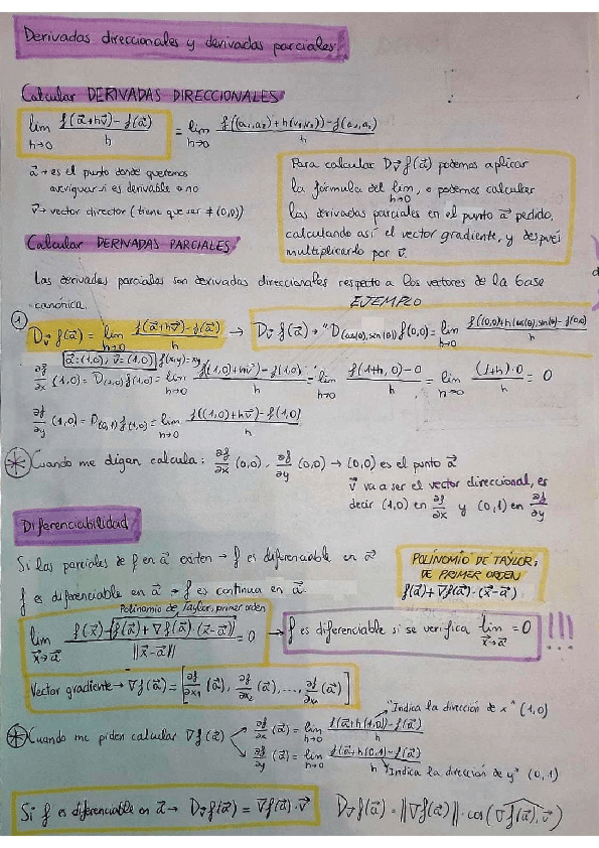 Derivadas direccionales y derivadas parciales
Calcular DERIVADAS DIRECCIONALES
lim h→0 (f(a⃗+hv⃗)-f(a⃗))/h = lim h→0 (f((a₁,a₂)+h(v₁,v₂))-f(a₁,a₂))/h
a⃗ → es el punto donde queremos
averiguar si es derivable o no
v⃗ → vector director (tiene que ser ≠ (0,0))
Para calcular D_v⃗ f(a⃗) podemos aplicar
la fórmula del lim h→0, o podemos calcular
las derivadas parciales en el punto a⃗ pedido,
calculando así el vector gradiente, y después
multiplicarlo por v⃗.
Calcular DERIVADAS PARCIALES
Las derivadas parciales son derivadas direccionales respecto a los vectores de la base
canónica.
EJEMPLO
① D_v⃗ f(a⃗) = lim h→0 (f(a⃗+hv⃗)-f(a⃗))/h → D_v⃗ f(a⃗) → "D_(cos(θ),sin(θ)) f(0,0) = lim h→0 (f((0,0)+h(cos(θ),sin(θ))-f(0,0))/h
a⃗=(1,0), v⃗=(1,0) f(x,y)=xy
∂f/∂x (1,0) = D_(1,0) f(1,0) = lim h→0 (f((1,0)+hv⃗)-f(1,0))/h = lim h→0 (f(1+h,0)-0)/h = lim h→0 ((1+h)·0)/h = 0
∂f/∂y (1,0) = D_(0,1) f(1,0) = lim h→0 (f((1,0)+hv⃗)-f(1,0))/h
Cuando me digan calcula: ∂f/∂x (0,0), ∂f/∂y (0,0) → (0,0) es el punto a⃗
v⃗ va a ser el vector direccional, es
decir (1,0) en ∂f/∂x y (0,1) en ∂f/∂y
Diferenciabilidad
Si las parciales de f en a⃗ existen → f es diferenciable en a⃗
f es diferenciable en a⃗ → f es continua en a⃗.
POLINOMIO DE TAYLOR:
DE PRIMER ORDEN
f(a⃗)+∇f(a⃗)·(x⃗-a⃗)
Polinomio de Taylor, primer orden
lim x⃗→a⃗ (f(x⃗)-[f(a⃗)+∇f(a⃗)·(x⃗-a⃗)])/‖x⃗-a⃗‖ = 0 → f es diferenciable si se verifica lim x⃗→a⃗ = 0 !!!
Vector gradiente → ∇f(a⃗) = [∂f/∂x₁ (a⃗), ∂f/∂x₂ (a⃗), ..., ∂f/∂xₙ (a⃗)]
"Indica la dirección de x" (1,0)
Cuando me piden calcular ∇f(a⃗)
∂f/∂x (a⃗) = lim h→0 (f(a⃗+h(1,0))-f(a⃗))/h
∂f/∂y (a⃗) = lim h→0 (f(a⃗+h(0,1)-f(a⃗))/h
"Indica la dirección de y" (0,1)
Si f es diferenciable en a⃗ → D_v⃗ f(a⃗) = ∇f(a⃗)·v⃗
D_v⃗ f(a⃗) = ‖∇f(a⃗)‖·cos(∇f(a⃗),v⃗)